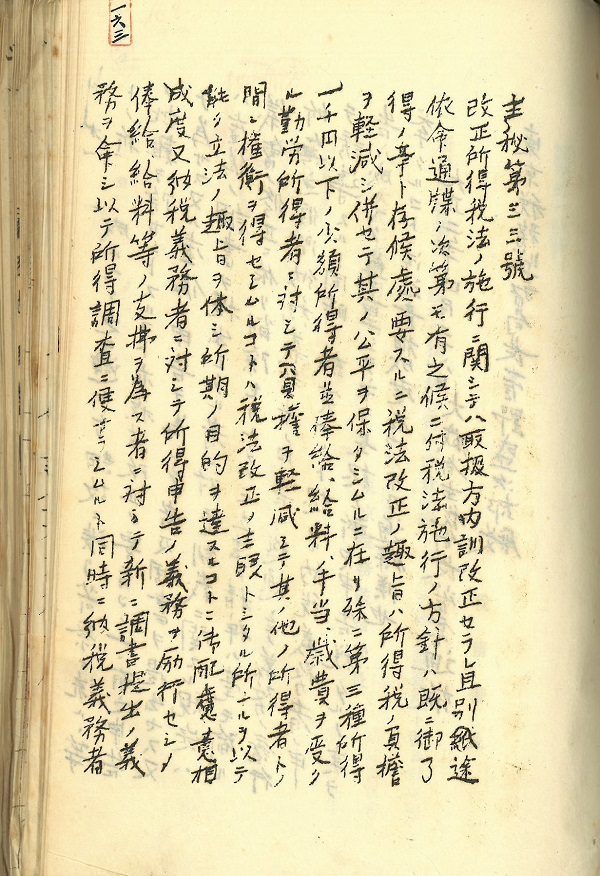 一六三
主秘第三三號
改正所得税法ノ施行ニ関シテハ取扱方内訓改正セラレ且別紙途
依命通牒ノ次第モ有之候ニ付税法施行ノ方針ハ既ニ御了
得ノ事ト存候處要スルニ税法改正ノ趣旨ハ所得税ノ負擔
ヲ軽減シ併セテ其ノ公平ヲ保タシムルニ在リ殊ニ第三種所得
一千円以下ノ少額所得者並俸給、給料、手当、歳費ヲ受ク
ル勤労所得者ニ対シテ負擔ヲ軽減シテ其ノ他ノ所得者トノ
間ニ権衡ヲ得セシムルコトハ税法改正ノ主眼トシタル所ナルヲ以テ
能ク立法ノ趣旨ヲ体シ所期ノ目的ヲ達スルコトニ御配意相
成度又納税義務者ニ対シテ所得申告ノ義務ヲ励行セシメ
俸給、給料等ノ支拂ヲ為ス者ニ対シテ新ニ調書提出ノ義
務ヲ命シ以テ所得調査ニ便ナラシムルト同時ニ納税義務者